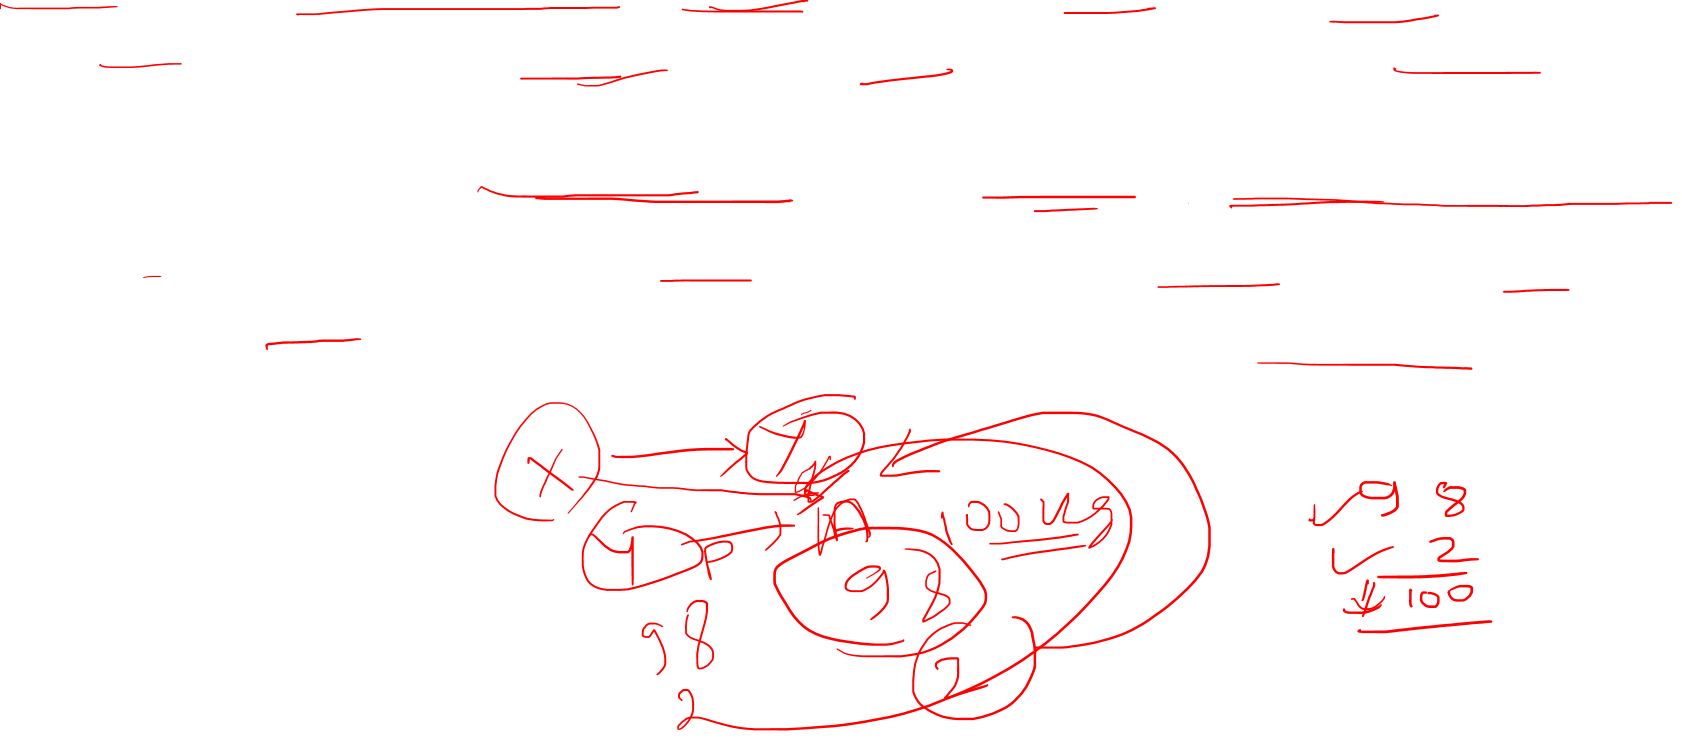 X Y
Y P m 100 Kg
98
98
2
2
98
2
100